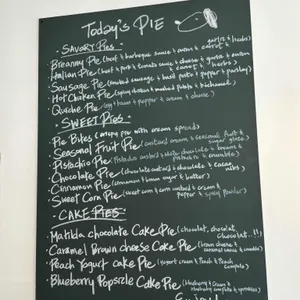 Today's PIE
· SAVORY PIES ·
(beef & barbeque sauce & onion & carrot & garlic & herbs)
Italian Pie (beef & pork & tomato sauce & cheese & garlic & onion & carrot & herbs)
Sausage Pie (smoked sausage & basil pesto & pepper & parsley)
Hot Chicken Pie (spicy chicken & mashed potato &
Quiche Pie (egg & ham & pepper & cream & cheese)
· SWEET PIES ·
Pie Bites (crispy pie with cream spread)
Seasonal Fruit Pie (custard cream & seasonal fruit & sugar
Pistachio Pie (Pistachio custard & white chocolate &
Chocolate Pie (chocolate custard & chocolate & cacao nibs)
Cinnamon Pie (cinnamon & brown sugar & butter)
Sweet Corn Pie (sweet corn & corn custard & cream & pepper & spicy powder)
· CAKE PIES ·
Matilda chocolate Cake Pie (chocolat, chocolat, chocolat..!!!)
Caramel Brown cheese Cake Pie (brown cheese & caramel sauce & crumble)
Peach Yogurt cake Pie (yogurt cream & Peach & Peach compote)
Blueberry Popsicle Cake Pie (blueberry & cream & blueberry compote & sprinkles)